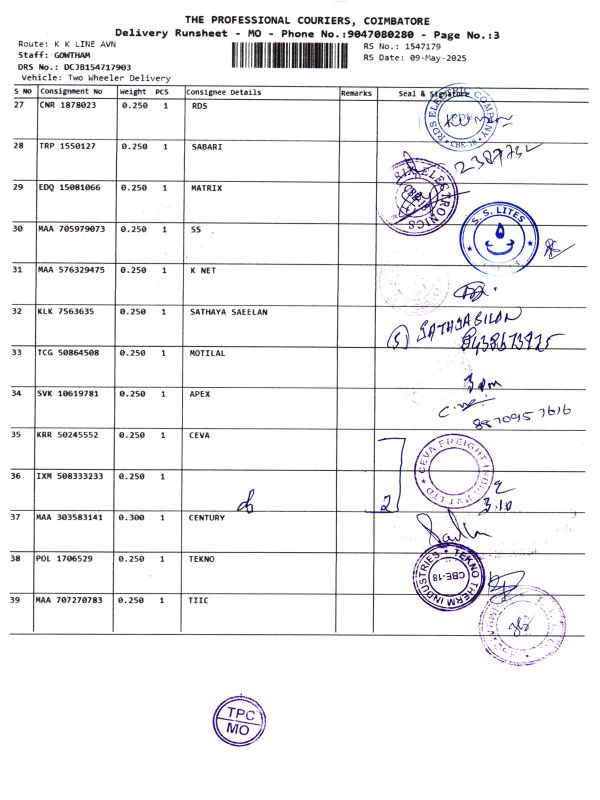 THE PROFESSIONAL COURIERS, COIMBATORE
Delivery Runsheet - MO - Phone No.:9047080280 - Page No.:3
Route: K K LINE AVN
RS No.: 1547179
Staff: GOWTHAM
RS Date: 09-May-2025
DRS No.: DCJB154717903
Vehicle: Two Wheeler Delivery
S NO Consignment No Weight PCS Consignee Details Remarks Seal & Signature
27 CNR 1878023 0.250 1 RDS
RDS ELECTRIC COMPANY CBE-18
28 TRP 1550127 0.250 1 SABARI
29 EDQ 15081066 0.250 1 MATRIX
MATRIX ELECTRONICS
30 MAA 705979073 0.250 1 SS
S. S. LITES
31 MAA 576329475 0.250 1 K NET
32 KLK 7563635 0.250 1 SATHAYA SAEELAN
(S) SATHYASILAN
33 TCG 50864508 0.250 1 MOTILAL
3 pm
34 SVK 10619781 0.250 1 APEX
35 KRR 50245552 0.250 1 CEVA
CEVA FREIGHT INDIA PVT LTD
36 IXM 508333233 0.250 1
2
3.10
37 MAA 303583141 0.300 1 CENTURY
38 POL 1706529 0.250 1 TEKNO
TEKNO THERM INDUSTRIES CBE-18
39 MAA 707270783 0.250 1 TIIC
TPC
MO